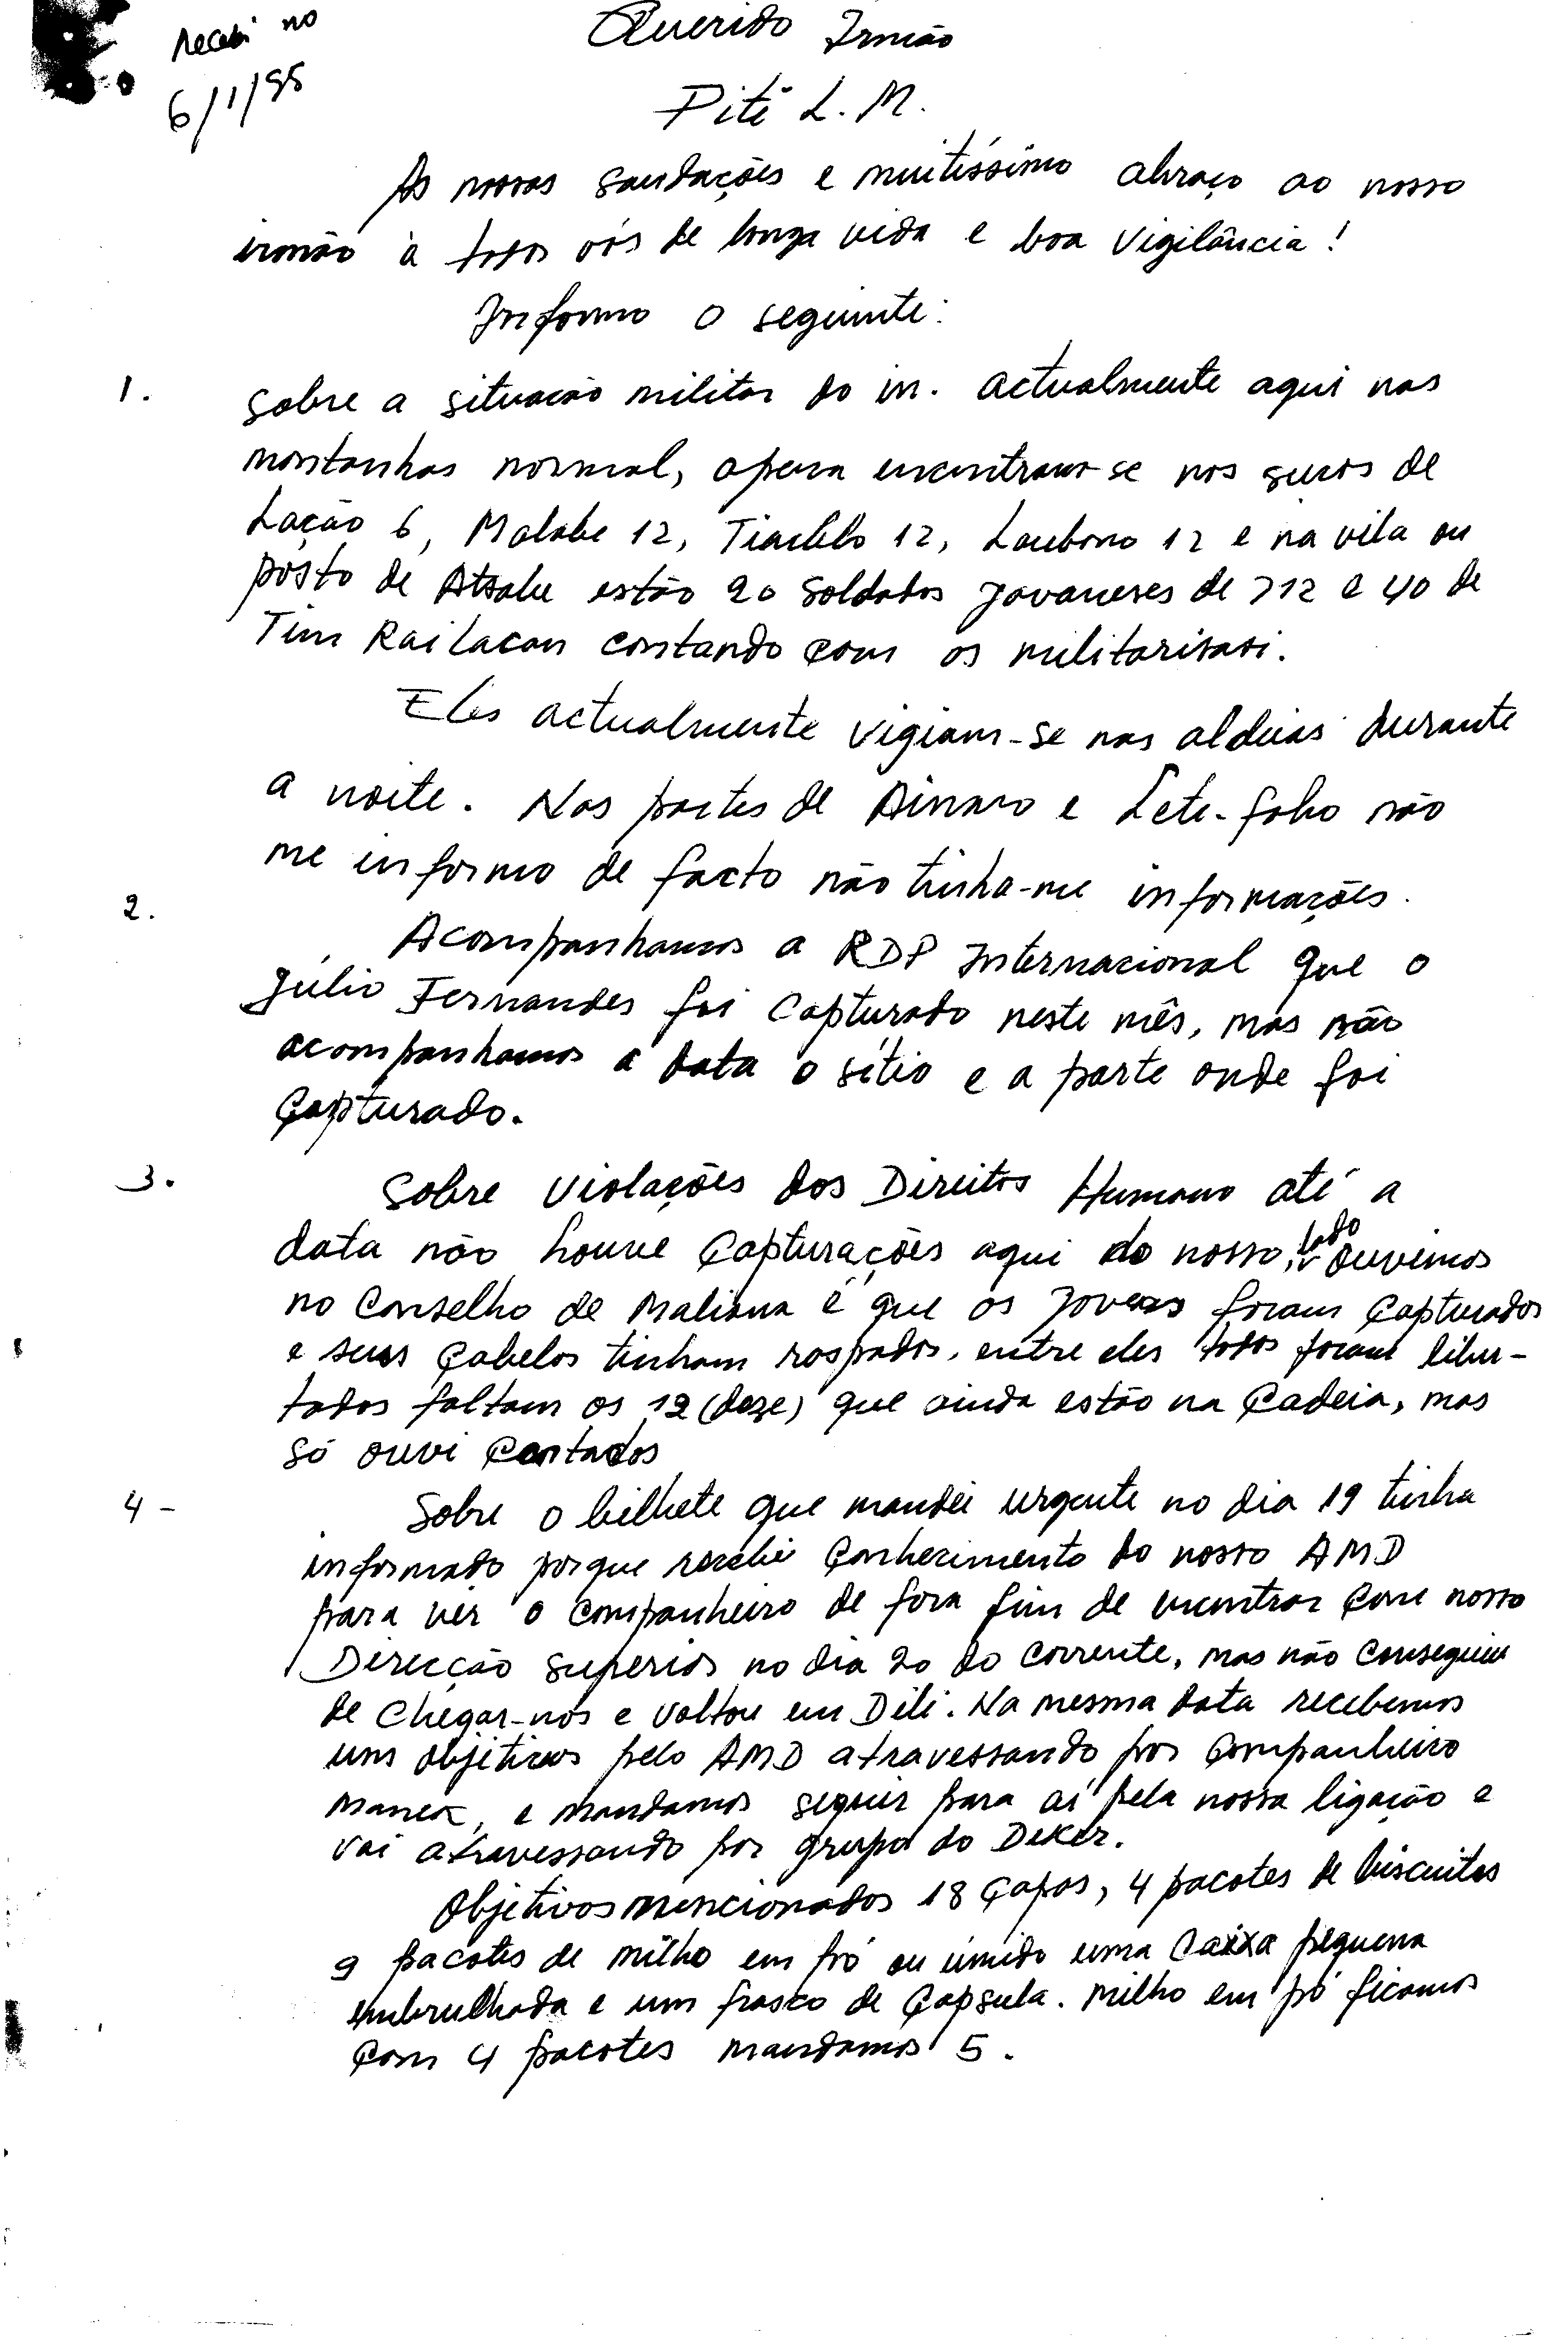 Recebi no
6/1/95
Querido Irmão
Pitē L. M.
As nossas saudações e muitíssimo abraço ao nosso
irmão à todos vós de longa vida e boa vigilância!
Informo o seguinte:
1. Sobre a situacão militar do in. actualmente aqui nas
montanhas normal, apena encontram-se nos sucos de
Lação 6, Malabe 12, Tiarlelo 12, Laubono 12 e na vila ou
posto de Atsabe estão 20 soldados javaneses de 712 e 40 de
Tim Railacan contando com os militarisasi.
Eles actualmente vigiam-se nas aldeias durante
a noite. Nas partes de Ainaro e Lete-foho não
me informo de facto não tinha-me informações.
2. Acompanhamos a RDP Internacional que o
Júlio Fernandes foi capturado neste mês, mas não
acompanhamos a data o sítio e a parte onde foi
Çapturado.
3. Sobre violações dos Direitos Humano até a
data não houve Çapturações aqui do nosso, lado ouvimos
no Conselho de Maliana é que os jovens foram Çapturados
e seus Çabelos tinham raspados, entre eles todos foram liber-
tados faltam os 12 (doze) que ainda estão na Çadeia, mas
só ouvi Contados
4 - Sobre o bilhete que mandei urgente no dia 19 tinha
informado porque recebi Çonhecimento do nosso AMD
para ver o companheiro de fora fim de encontrar Çom nosso
Direcção superior no dia 20 do corrente, mas não conseguiu
de chegar-nos e voltou em Dili. Na mesma data recebemos
uns objetivos pelo AMD atravessando por Çompanheiro
Manek, e mandamos seguir para aí pela nossa ligação e
vai atravessando por grupo do Deker.
Objetivos mencionados 18 Çapas, 4 pacotes de biscuitos
9 pacotes de milho em pó ou úmido uma Caixa pequena
embrulhada e um frasco de Çapsula. Milho em pó ficamos
Çom 4 pacotes mandamos 5.